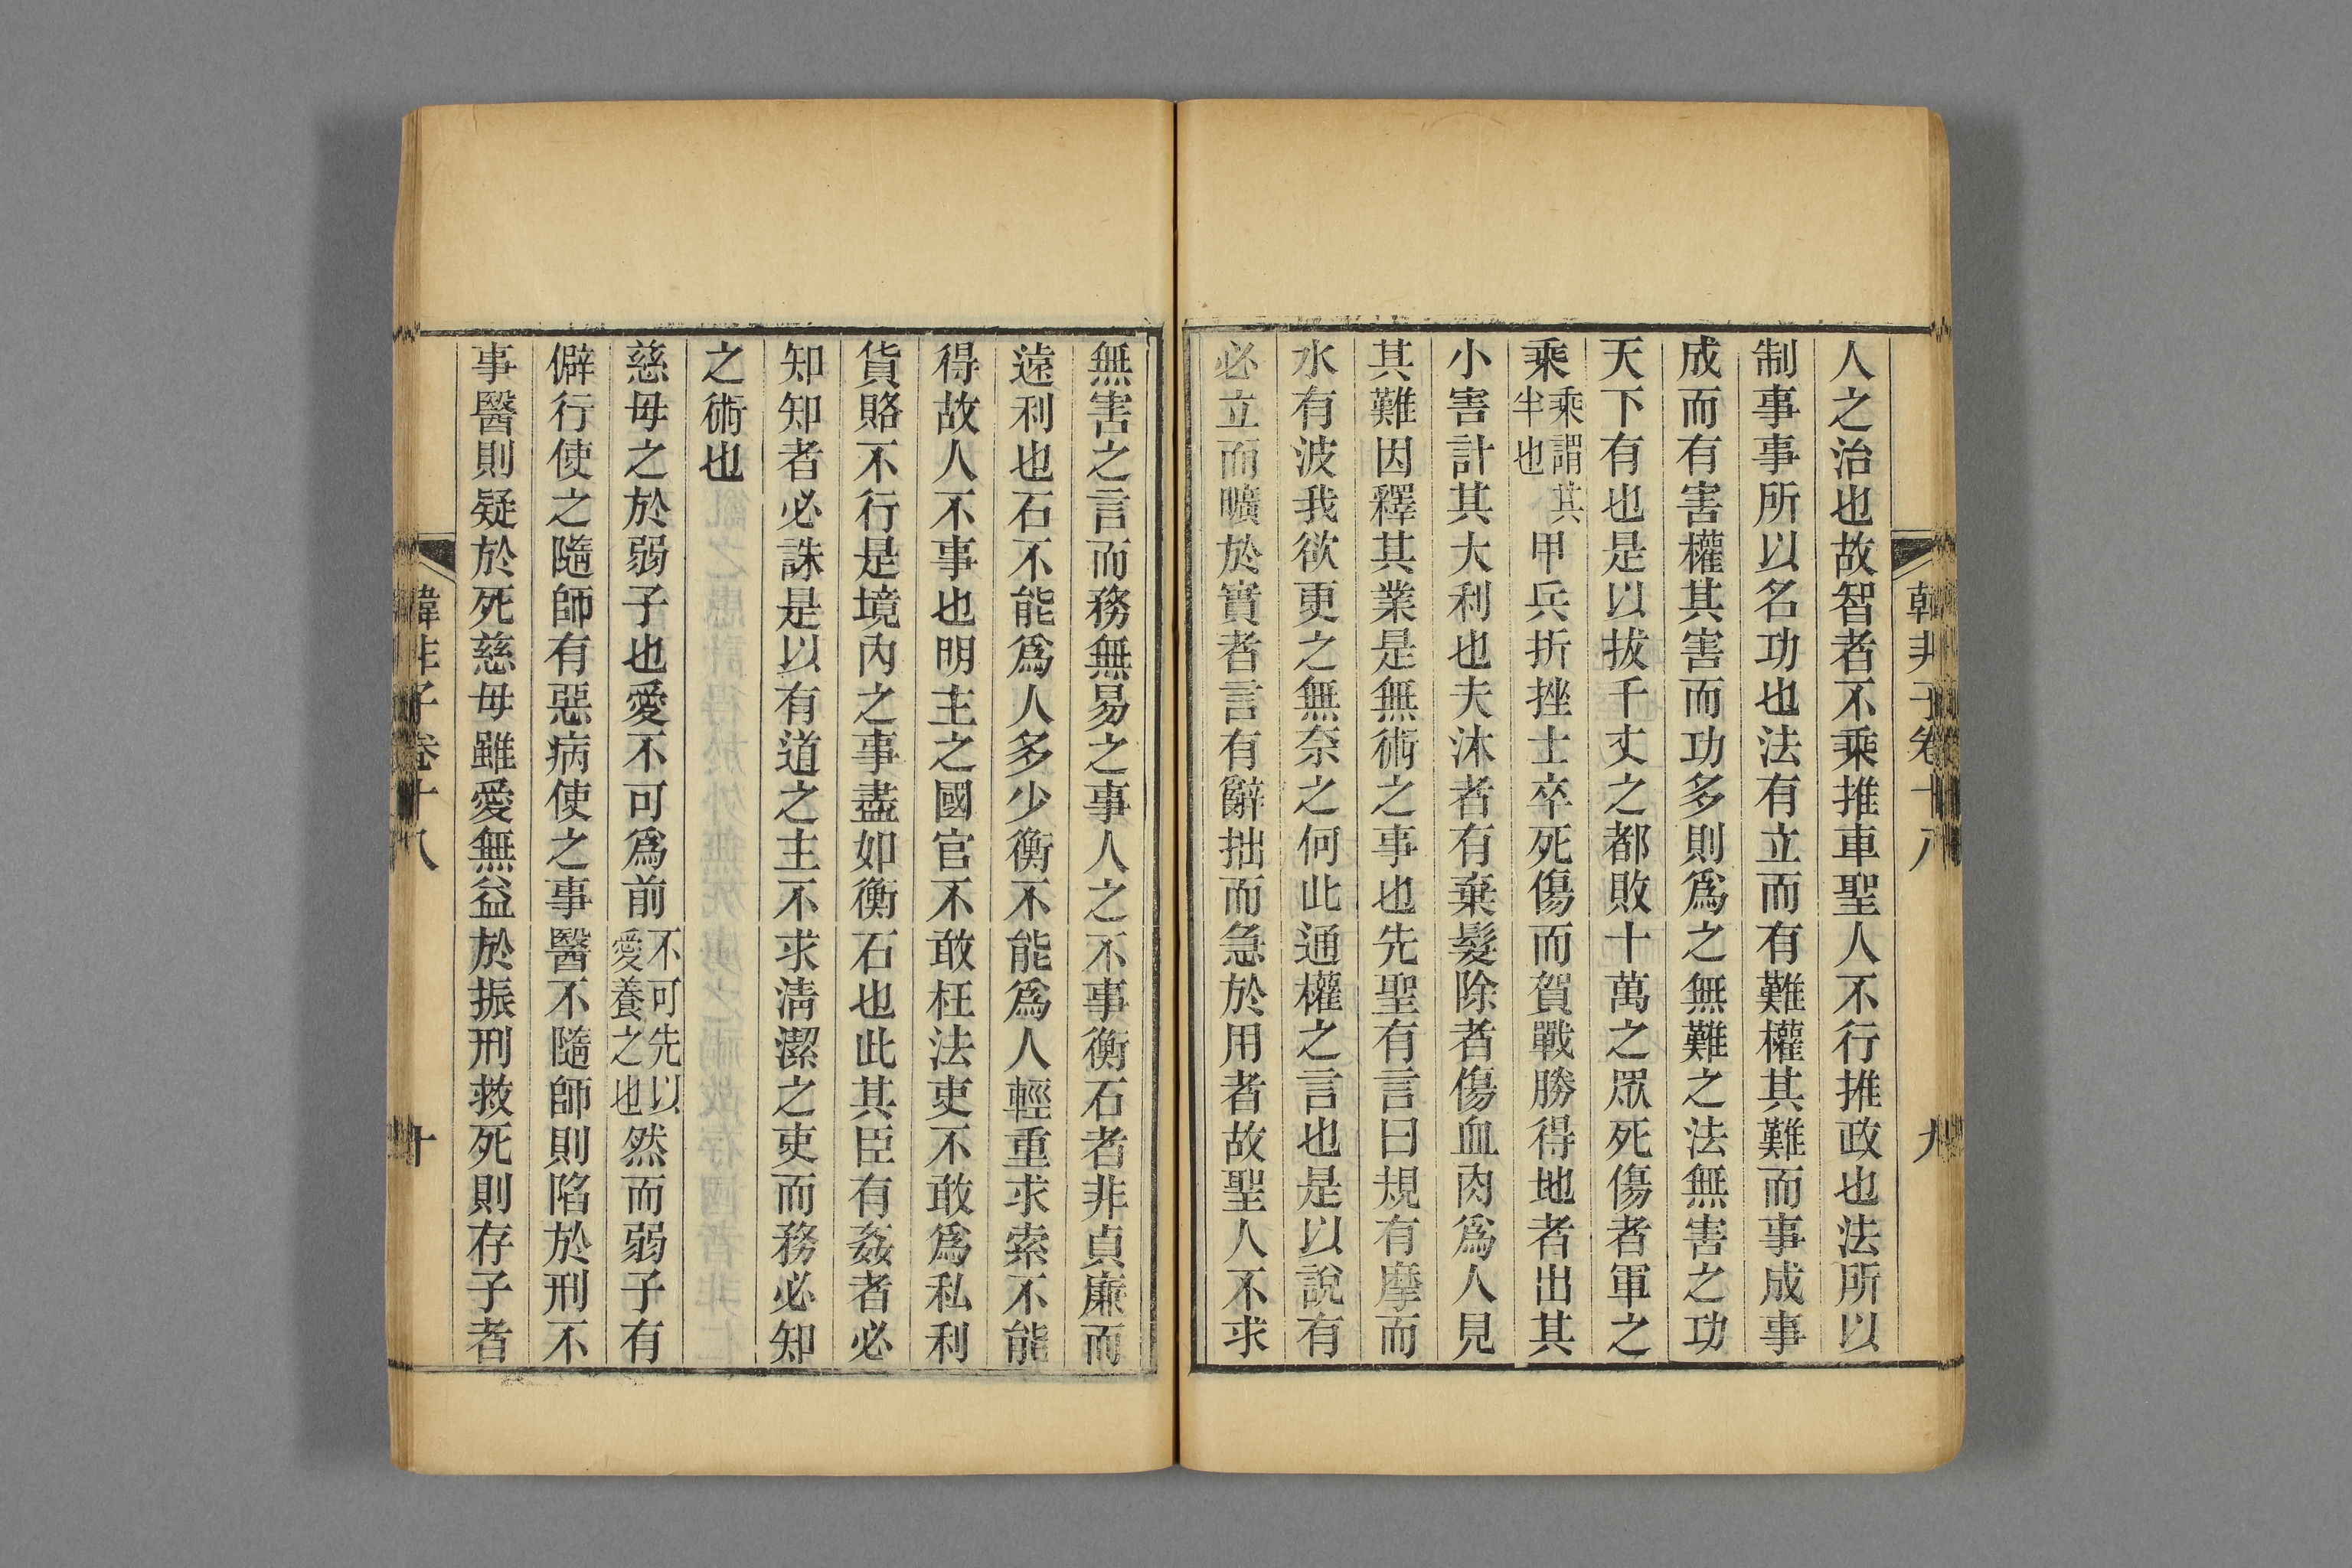 韓非子卷十八 九
人之治也故智者不乘推車聖人不行推政也法所以
制事事所以名功也法有立而有難權其難而事成事
成而有害權其害而功多則爲之無難之法無害之功
天下有也是以拔千丈之都敗十萬之眾死傷者軍之
乘乘謂其半也甲兵折挫士卒死傷而賀戰勝得地者出其
小害計其大利也夫沐者有棄髮除者傷血肉爲人見
其難因釋其業是無術之事也先聖有言曰規有摩而
水有波我欲更之無奈之何此通權之言也是以說有
必立而曠於實者言有辭拙而急於用者故聖人不求
無害之言而務無易之事人之不事衡石者非貞廉而
遠利也石不能爲人多少衡不能爲人輕重求索不能
得故人不事也明主之國官不敢枉法吏不敢爲私利
貨賂不行是境內之事盡如衡石也此其臣有姦者必
知知者必誅是以有道之主不求清潔之吏而務必知
之術也
慈母之於弱子也愛不可爲前不可先以愛養之也然而弱子有
僻行使之隨師有惡病使之事醫不隨師則陷於刑不
事醫則疑於死慈母雖愛無益於振刑救死則存子者
韓非子卷十八 十